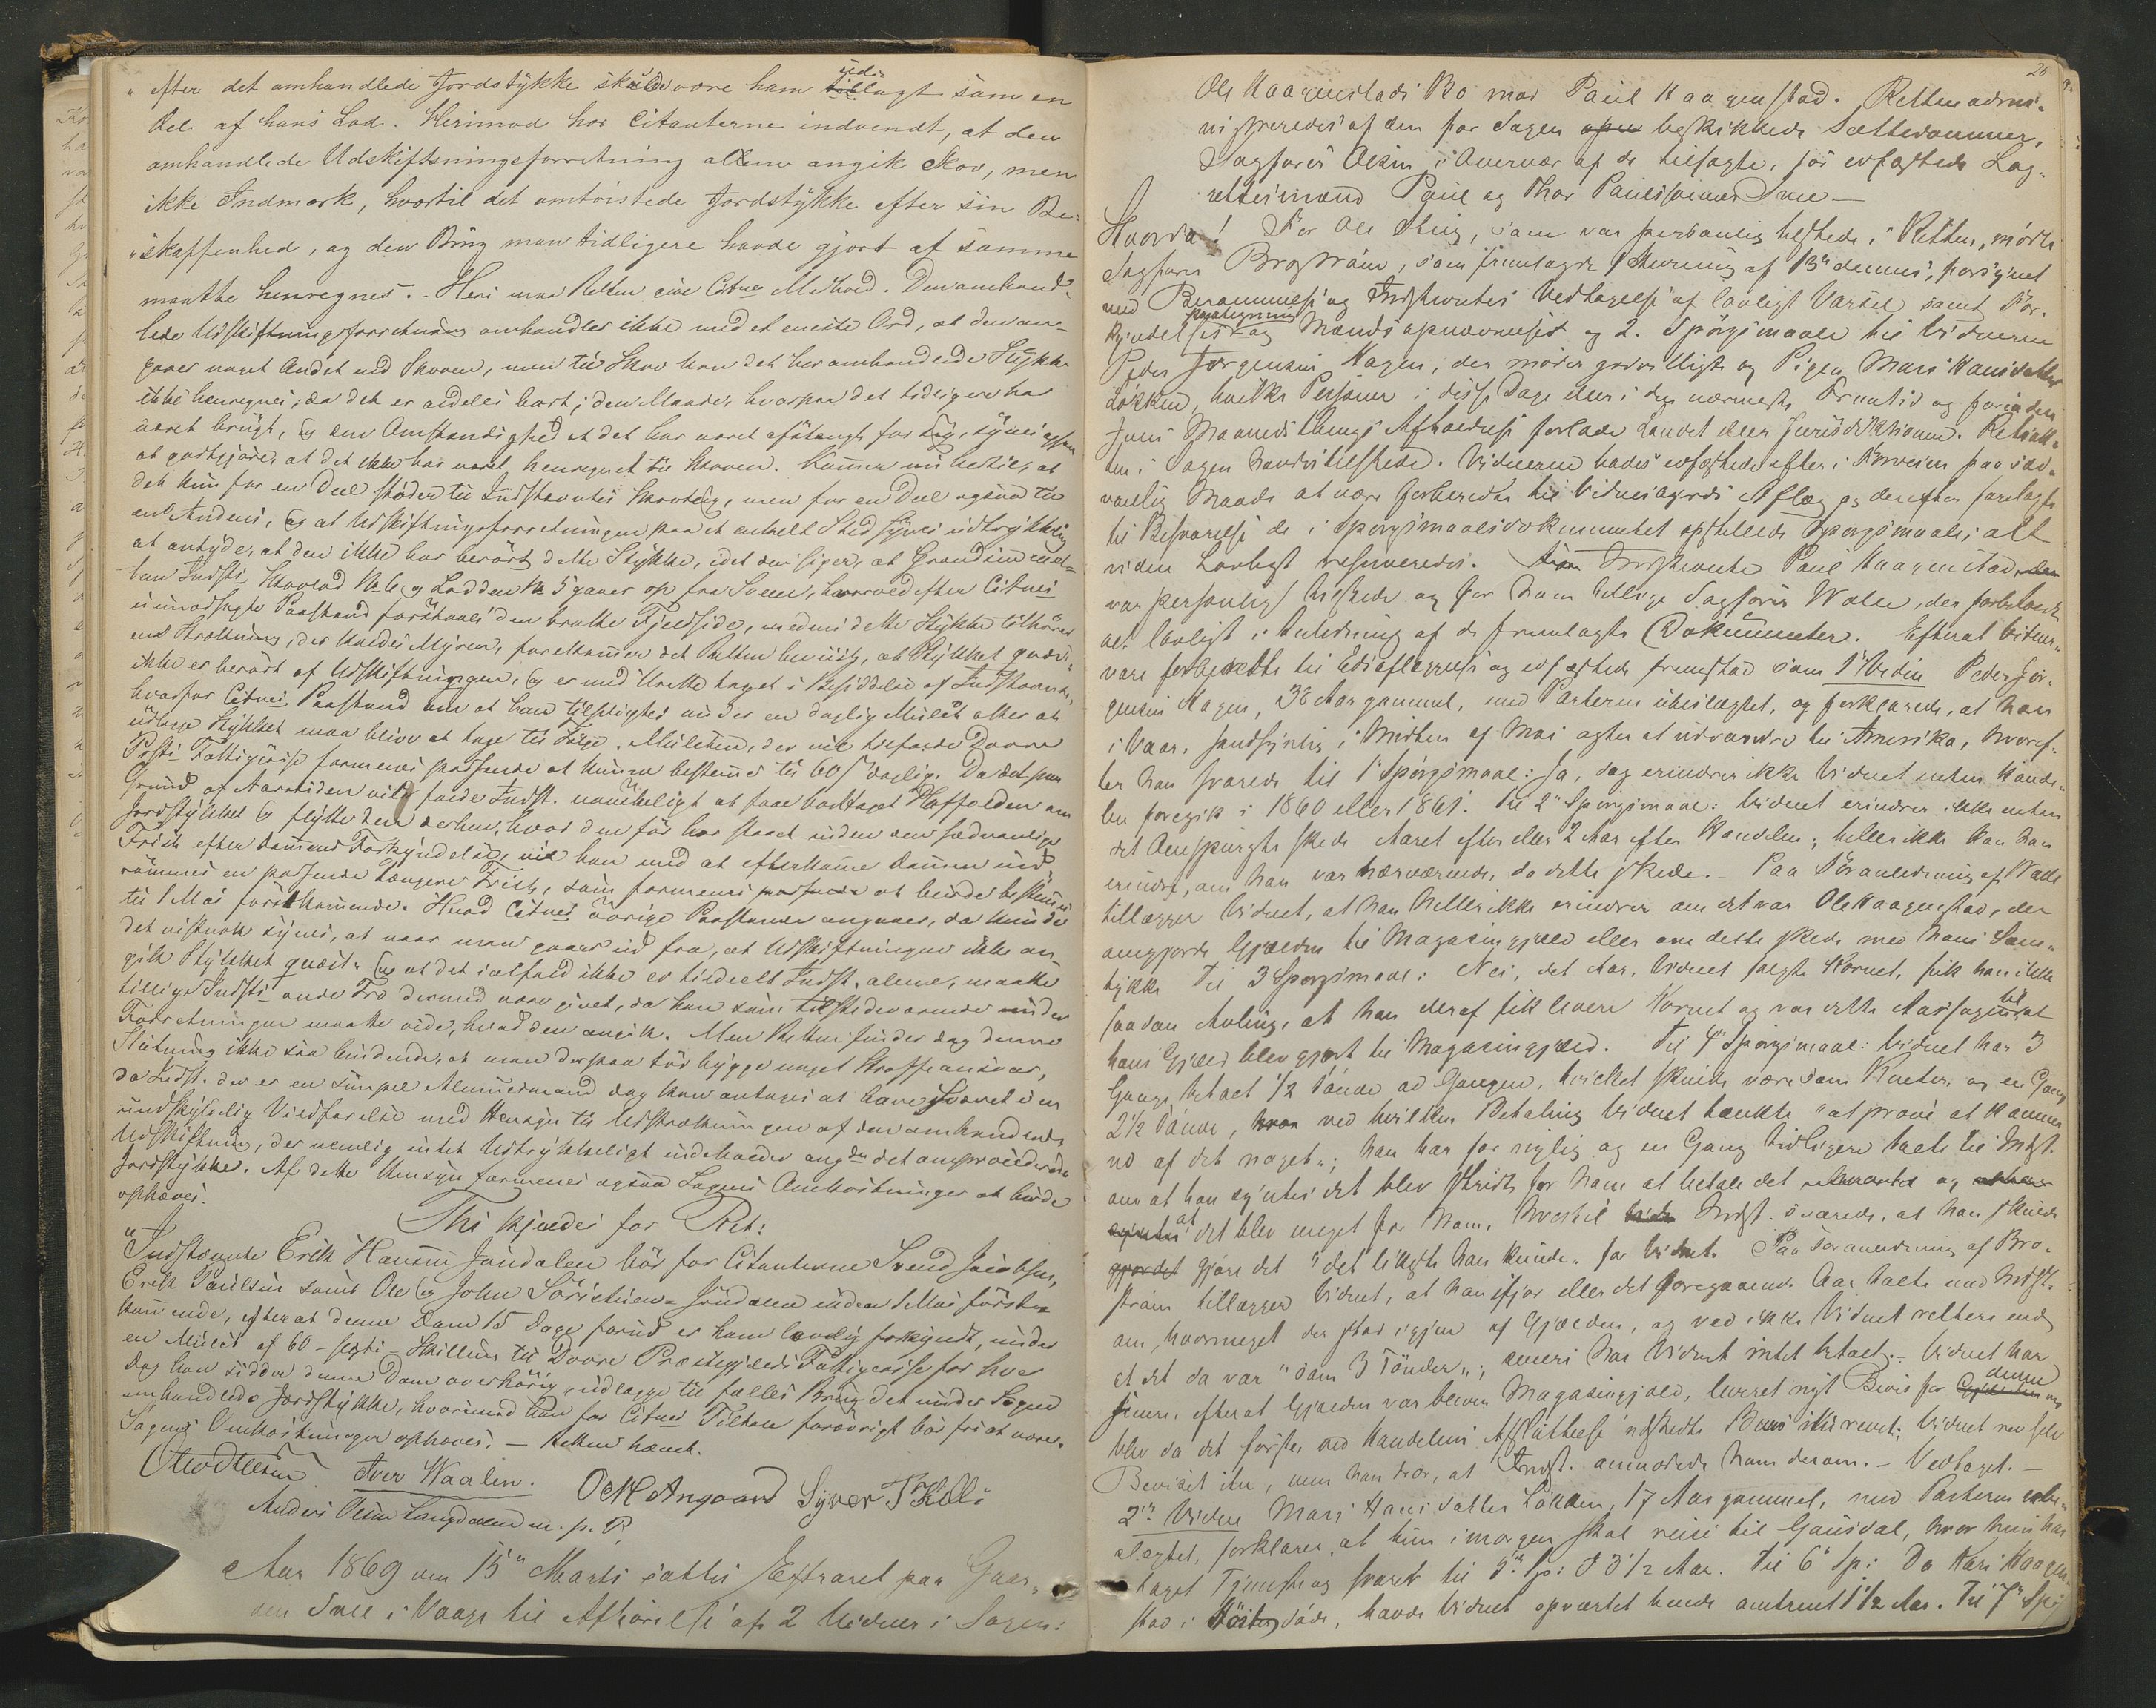 efter det omhandlede Jordstykke skulde være ham udlagt som en
Del af hans Lod. Herimod har Citanterne indvendt, at den
omhandlede Udskiftningsforretning allene angik Skov, men
ikke Indmark, hvortil det omtvistede Jordstykke efter sin Be-
skaffenhed, og den Brug man tidligere havde gjort af samme
maatte henregnes. - Heri maa Retten give Citne Medhold. Den omhand-
lede Udskiftningsforretning omhandler ikke med et eneste Ord, at den an-
gaaer noget Andet end Skoven, men til Skov kan det her omhandlede Stykke
ikke henregnes, da det er aldeles bart; den Maade, hvorpaa det tidligere har
været brugt, og den Omstændighed at det har været afstængt for sig, synes
at godtgjøre, at det ikke har været henregnet til Skoven. Kommer nu hertil, at
det kun for en Deel støder til Indstævntes Skovteig, men for en Deel ogsaa til
en Andens, og at Udskiftningsforretningen paa et enkelt Sted synes udtrykkelig
at antyde, at den ikke har berørt dette Stykke, idet den siger, at Grændsen mel-
lem Indsts Skovlod No 6 og Lodden No 5 gaaer op fra Sveen, hvorved efter Citnes
uimodsagte Paastand forstaaes den bratte Fjeldside, medens dette Stykke tilhører
en Strækning, der kaldes Myren, forekommer det Retten beviist, at Stykket
ikke er berørt af Udskiftningen, og er med Urette taget i Besiddelse af Indstævnte,
hvorfor Citnes Paastand om at han tilpligtes under en daglig Mulct atter at
udlægge Stykket maa blive at tage til Følge. Mulcten, der vil tilfalde Dovre
Præsts Fattigcasse formenes passende at kunne bestemmes til 60 s daglig. Da det paa
Grund af Aarstiden vil falde Indst. vanskeligt at faae borttaget Havfolden om
Jordstykket og flytte den derhen, hvor den før har staaet inden den sædvanlige
Frist efter Dommens Forkyndelse, vil han med at efterkomme Dommen ind-
rømmes en passende længere Frist, som formenes at burde bestemmes
til 1 Mai førstkommende. Hvad Citnes øvrige Paastande angaaer, da kunde
det vistnok synes, at naar man gaaer ud fra, at Udskiftningen ikke an-
gik Stykket quæst. og at det ialfald ikke er tildeelt Indst. alene, maatte
tillige Indsts onde Tro dermed være givet, da han som tilstedeværende under
Forretningen maatte vide, hvad den angik. Men Retten finder dog denne
Slutning ikke saa bindende, at man derpaa tør bygge noget Straffeansvar,
da Indst. der er en simpel Almuesmand dog kan antages at have svævet i en
undskyldelig Vildfarelse med Hensyn til Udstrækningen af den omhandlede
Udskiftning, der nemlig intet Udtrykkeligt indeholder angde det omprocederede
Jordstykke. Af dette Hensyn formenes ogsaa Sagens Omkostninger at burde
ophæves.
Thi kjendes for Ret:
Indstævnte Erik Hansen Jøndalen bør for Citanterne Svend Jacobsen,
Erik Paulsen samt Ole og John Sørensen Jøndalen inden 1 Mai først-
kommende, efterat denne Dom 15 Dage forud er ham lovlig forkyndt, under
en Mulct af 60 - sexti - Skilling til Dovre Præstegjelds Fattigcasse for hver
Dag han sidder denne Dom overhørig, udlægge til fælles Brug det under Sagen
omhandlede Jordstykke, hvorimod han for Citnes Tiltale forøvrigt bør fri at være.
Sagens Omkostninger ophæves. - Retten hævet.
Iver Waalen. O K Angaard Syver T Kolli
Anders Olsen Langdalen m. p. P.
Aar 1869 den 15de Marts sattes Extraret paa Gaar-
den Sveе i Vaage til Afhørelse af 2 Vidner i Sagen:
26
Ole Haagenstads Bo mod Paul Haagenstad. Retten admi-
nistreredes af den for Sagen beskikkede Sættedommer,
Sagfører Olsen, i Overvær af de tilsagte, før edfæstede Lag-
rettesmænd Paul og Thor Paulssønner Sveе -
Hvorda! For Ole, som var personlig tilstede i Retten, mødte
Sagfører Brostrøm, som fremlagde Stevning af 13de dennes, forsynet
med Berammelse og Indstevntes Vedtagelse af lovligt Varsel samt For-
kyndelsespaategning og Mandsopnævnelse og 2. Spørgsmaale til Vidnerne
Peder Jørgensen Hagen, der møder godvilligt og Pigen Mari Hansdatter
Løkken, hvilke Personer i disse Dage eller i den nærmeste Fremtid og forinden
Juni Maaneds Things Afholdelse forlade Landet eller Jurisdiktionen. Retsakt-
en i Sagen havdes tilstede. Vidnerne bades edfæstede efter i Forveien paa sæd-
vanlig Maade at være forberedte til Vidnesbyrds Aflæg og derefter forelagte
til Besvarelse de i Spørgsmaalsdokumentet opstillede Spørgsmaale; alt
videre Lovligt reserveredes. Indstevnte Paul Haagenstad
var personlig tilstede og for ham tillige Sagfører Wolle, der forbeholdt
alt lovligt i Anledning af de fremlagte Dokumenter. Efterat Vidnerne
vare forberedte til Edsaflæggelse og edfæstede fremstod som 1ste Vidne Peder Jør-
gensen Hagen, 38 Aar gammel, med Parterne ubeslægtet, og forklarede, at han
i Vaar, sandsynlig i Midten af Mai agter at udvandre til Amerika, hvoref-
ter han svarede til 1ste Spørgsmaal: Ja, dog erindrer ikke Vidnet enten Hande-
len foregik i 1860 eller 1861. Til 2det Spørgsmaal: Vidnet erindrer ikke enten
det Omspurgte skede Aaret efter eller 2 Aar efter Handelen; heller ikke kan han
erindre, om han var nærværende, da dette skede. - Paa Foranledning af Wolle
tillægger Vidnet, at han heller ikke erindrer om det var Ole Haagenstad, der
omgjorde Gjælden til Magasingjæld eller om dette skede med hans Sam-
tykke. Til 3 Spørgsmaal: Nei, det Aar, Vidnet solgte Kornet, fik han ikke
saadan Avling, at han deraf fik levere Kornet og var dette Aarsagen til at
hans Gjæld blev gjort til Magasingjæld. Til 4de Spørgsmaal: Vidnet har 3
Gange betalt 1/2 Tønde ad Gangen, hvilket skulde være som Renter, og en Gang
2 1/2 Tønde, ved hvilken Betaling Vidnet tænkte "at prøve at komme
ud af det noget"; han har for nylig og en Gang tidligere talt til Indst.
om at han syntes det blev stridt for ham at betale det og
at det blev meget for ham, hvortil Indst. svarede, at han skulde
gjøre det "det likeste han kunde" for Vidnet. Paa Foranledning af Bro-
strøm tillægger Vidnet, at han ifjor eller det foregaaende Aar talte med Indst.
om, hvormeget der stod igjen af Gjælden, og ved ikke Vidnet rettere end
at det da var "som 3 Tønder"; senere har Vidnet intet betalt. - Vidnet har
senere, efterat Gjælden var bleven Magasingjæld, leveret nyt Bevis for denne og
blev da det første ved Handelens Afsluttelse udstedte Bevis iturevet; Vidnet rev selv
Beviset itu, men han tror, at Indst. anmodede ham derom. - Vedtaget. -
2det Vidne Mari Hansdatter Løkken, 17 Aar gammel, med Parterne ube-
slægtet, forklarer, at hun imorgen skal reise til Gausdal, hvor hun har
taget Tjeneste og svaret til 5te Sp: I 3 1/2 Aar. Til 6te Sp: Da Kari Haagen-
stad i Høst døde, havde Vidnet opvartet hende omtrent 1 1/2 Aar. Til 7de Sp: